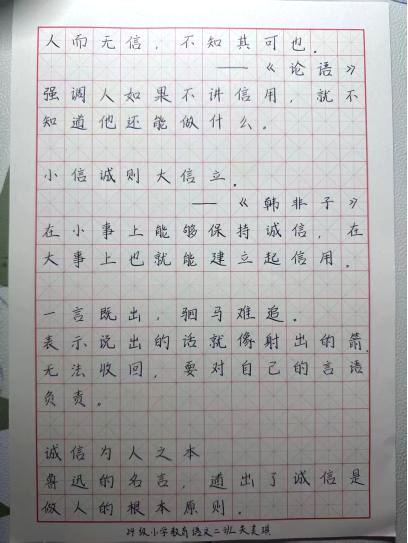 人而无信，不知其可也．
——《论语》
强调人如果不讲信用，就不
知道他还能做什么。
小信诚则大信立．
——《韩非子》
在小事上能够保持诚信，在
大事上也就能建立起信用．
一言既出，驷马难追．
表示说出的话就像射出的箭，
无法收回，要对自己的言语
负责。
诚信为人之本
鲁迅的名言，道出了诚信是
做人的根本原则．
级小学教育语文二班